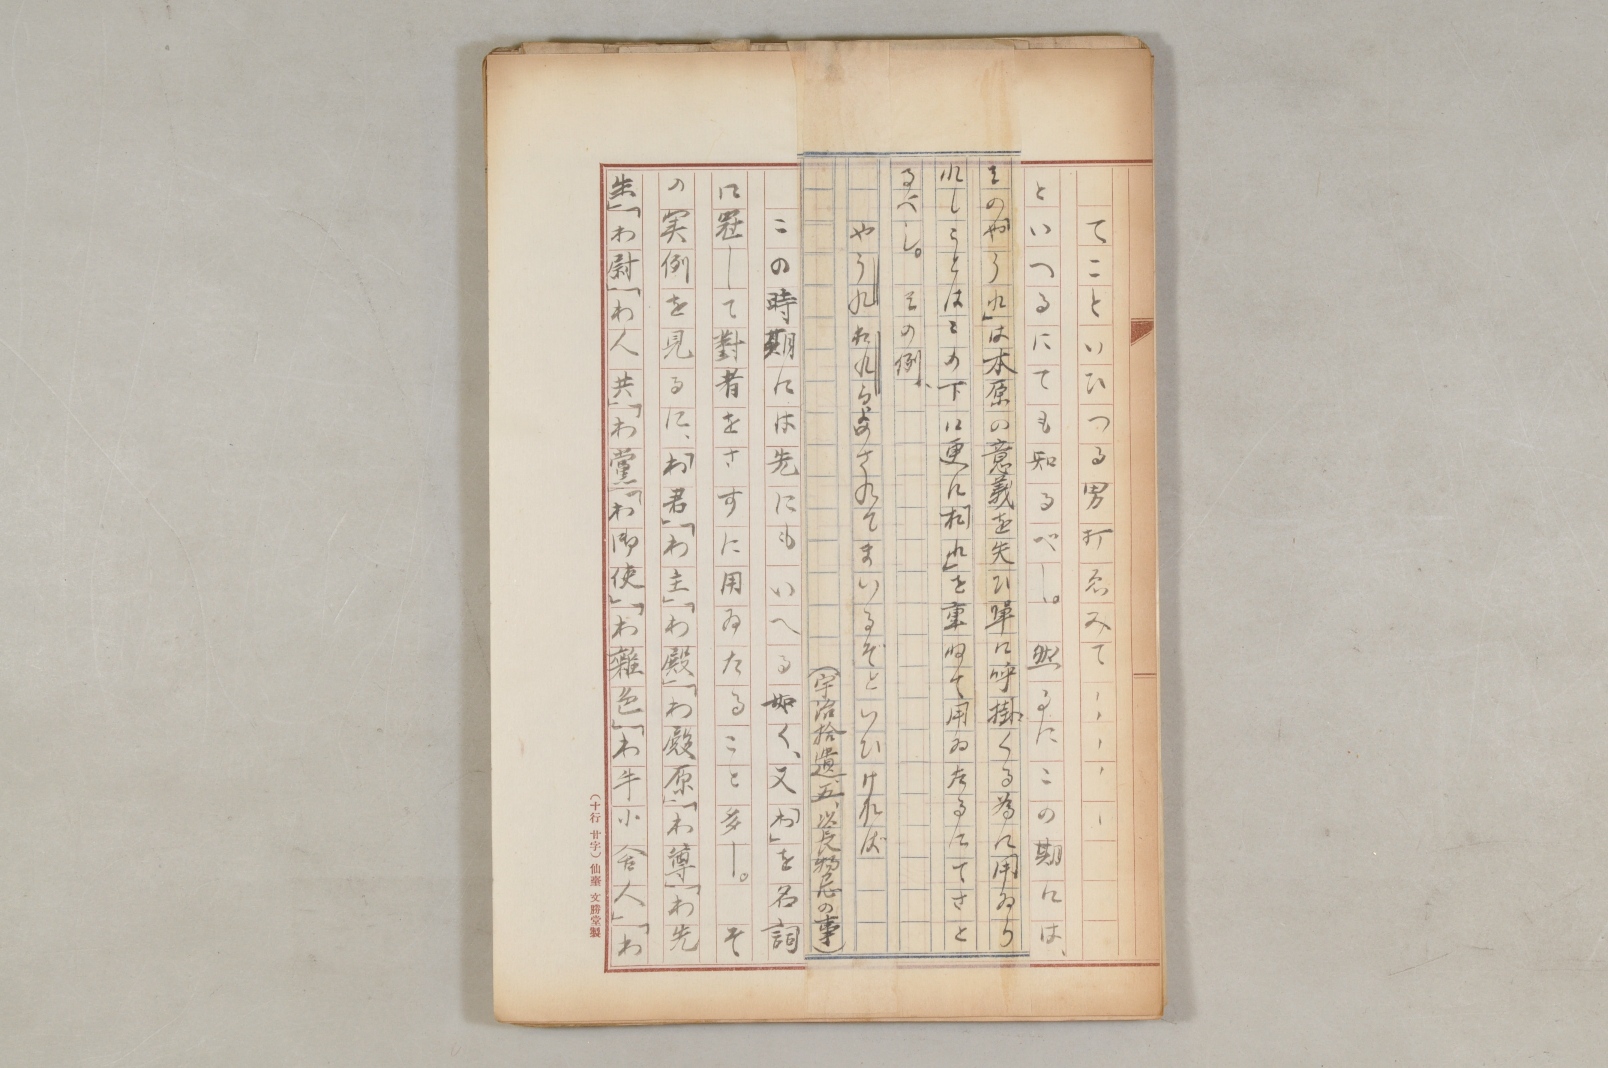 てこといひつる男打ゑみて、、、、、
といへるにても知るべし。然るにこの期には、
そのや「うれ」は本原の意義を失ひ単に呼掛くる為に用ゐら
れしことはその下に更に「おれ」を重ねて用ゐたるにてさと
るべし。その例、
やうれおれらよめされてまいるぞといひければ
(宇治拾遺、五、以長物忌の事)
この時期には先にもいへる如く、又「わ」を名詞
に冠して對者をさすに用ゐたること多し。そ
の実例を見るに、「わ君」「わ主」「わ殿」「わ殿原」「わ尊」「わ先
生」「わ尉」「わ人共」「わ黨」「わ御使」「わ雜色」「わ牛小舎人」「わ
(十行 廿字) 仙臺 文勝堂製